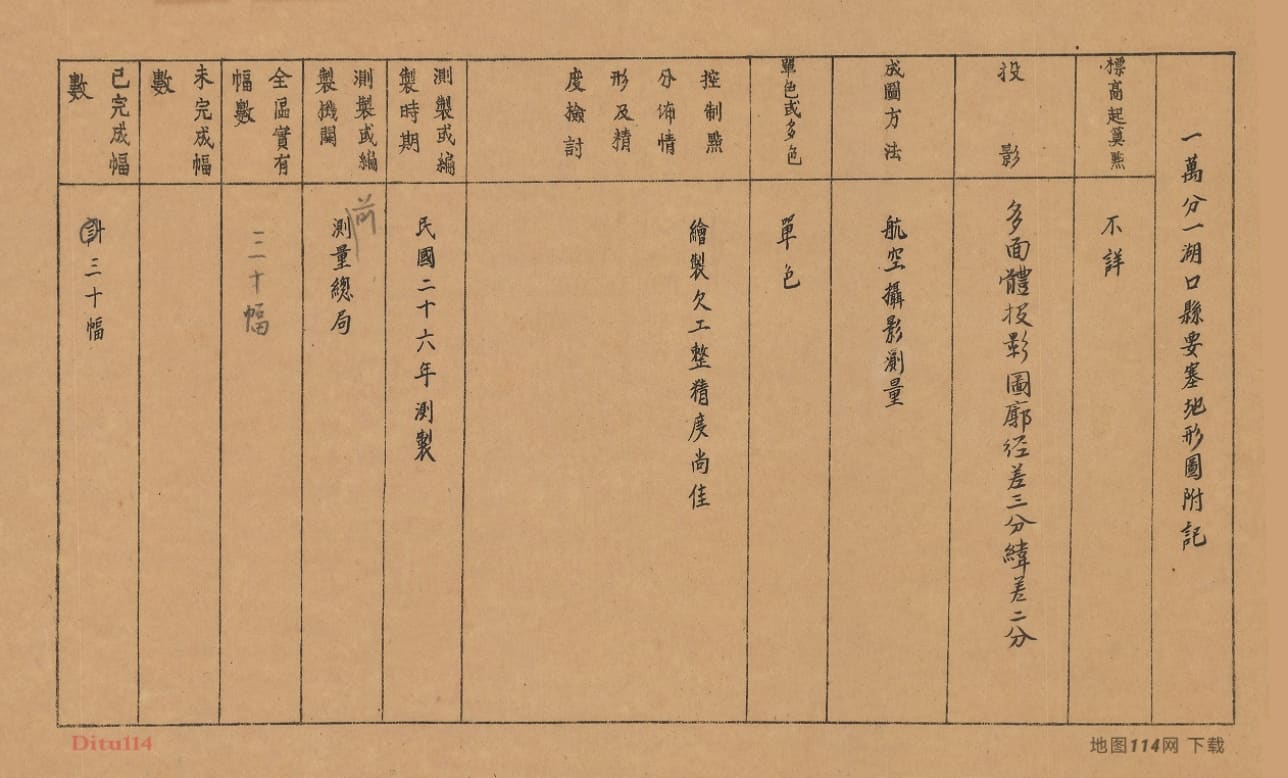 一萬分一湖口縣要塞地形圖附記
標高起算點
不詳
投影
多面體投影圖廓经差三分緯差二分
成圖方法
航空攝影測量
單色或多色
單色
控制點
分佈情
形及精
度檢討
繪製欠工整精度尚佳
測製或編
製時期
民國二十六年測製
測製或編
製機關
測量總局
全區實有
幅數
三十幅
未完成幅
數
已完成幅
數
計三十幅
Ditu114
地图114网 下载